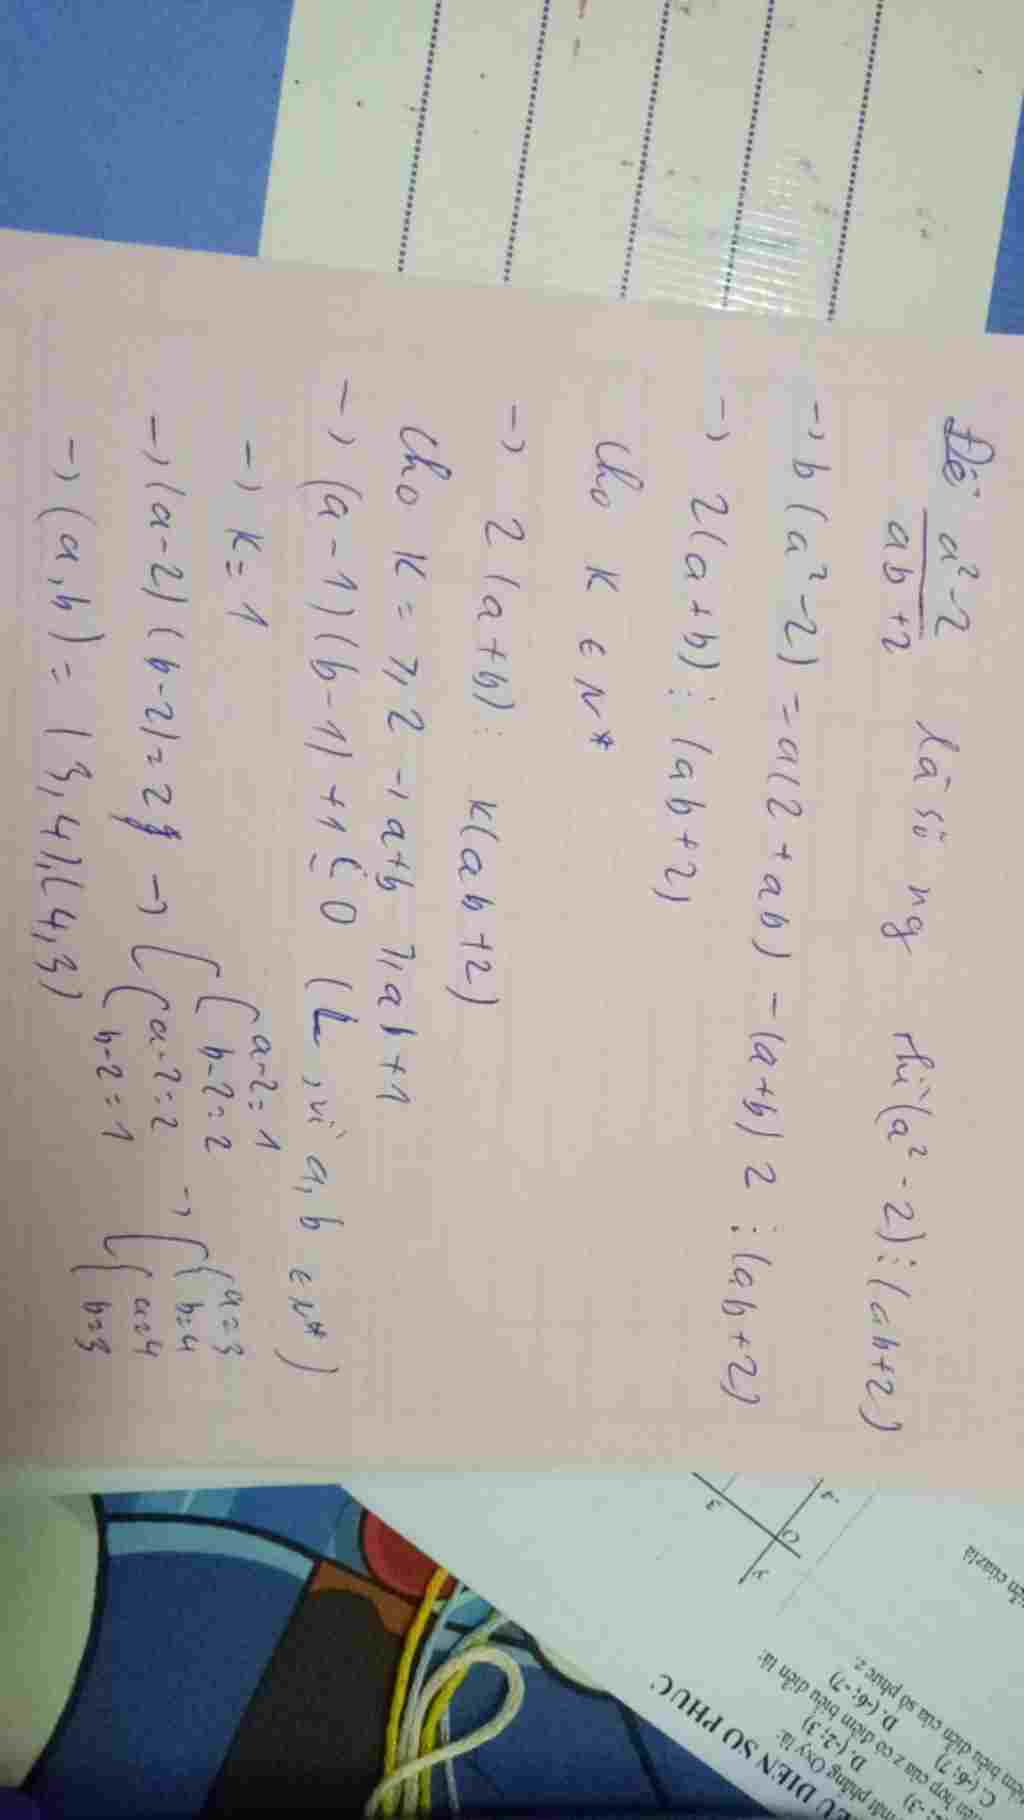 Để \frac{a²-2}{ab+2} là số ng thì (a²-2)⋮(ab+2)
→ b(a²-2) = a(2+ab) - (a+b)2 ⋮ (ab+2)
→ 2(a+b)⋮(ab+2)
Cho K ∈ N*
→ 2(a+b): K(ab+2)
Cho K = 7, 2 → a+b 7, ab+1
→ (a-1)(b-1)+1 ≤ 0 (L, vì a, b ∈ N*)
→ K=1
→ (a-2)(b-2)=2 → [ { a-2=1 b-2=2 { a-2=2 b-2=1 → [ { a=3 b=4 { a=4 b=3
→ (a,b) = (3,4),(4,3)
3
O
y
U DIEN SO PHUC
mặt phẳng Oxy là:
D. (-2; 3)
-3)
hợp của z có điểm biểu diễn là:
C. (-6; 7)
D. (-6; -7)
biểu diễn của số phức z
diễn của z là